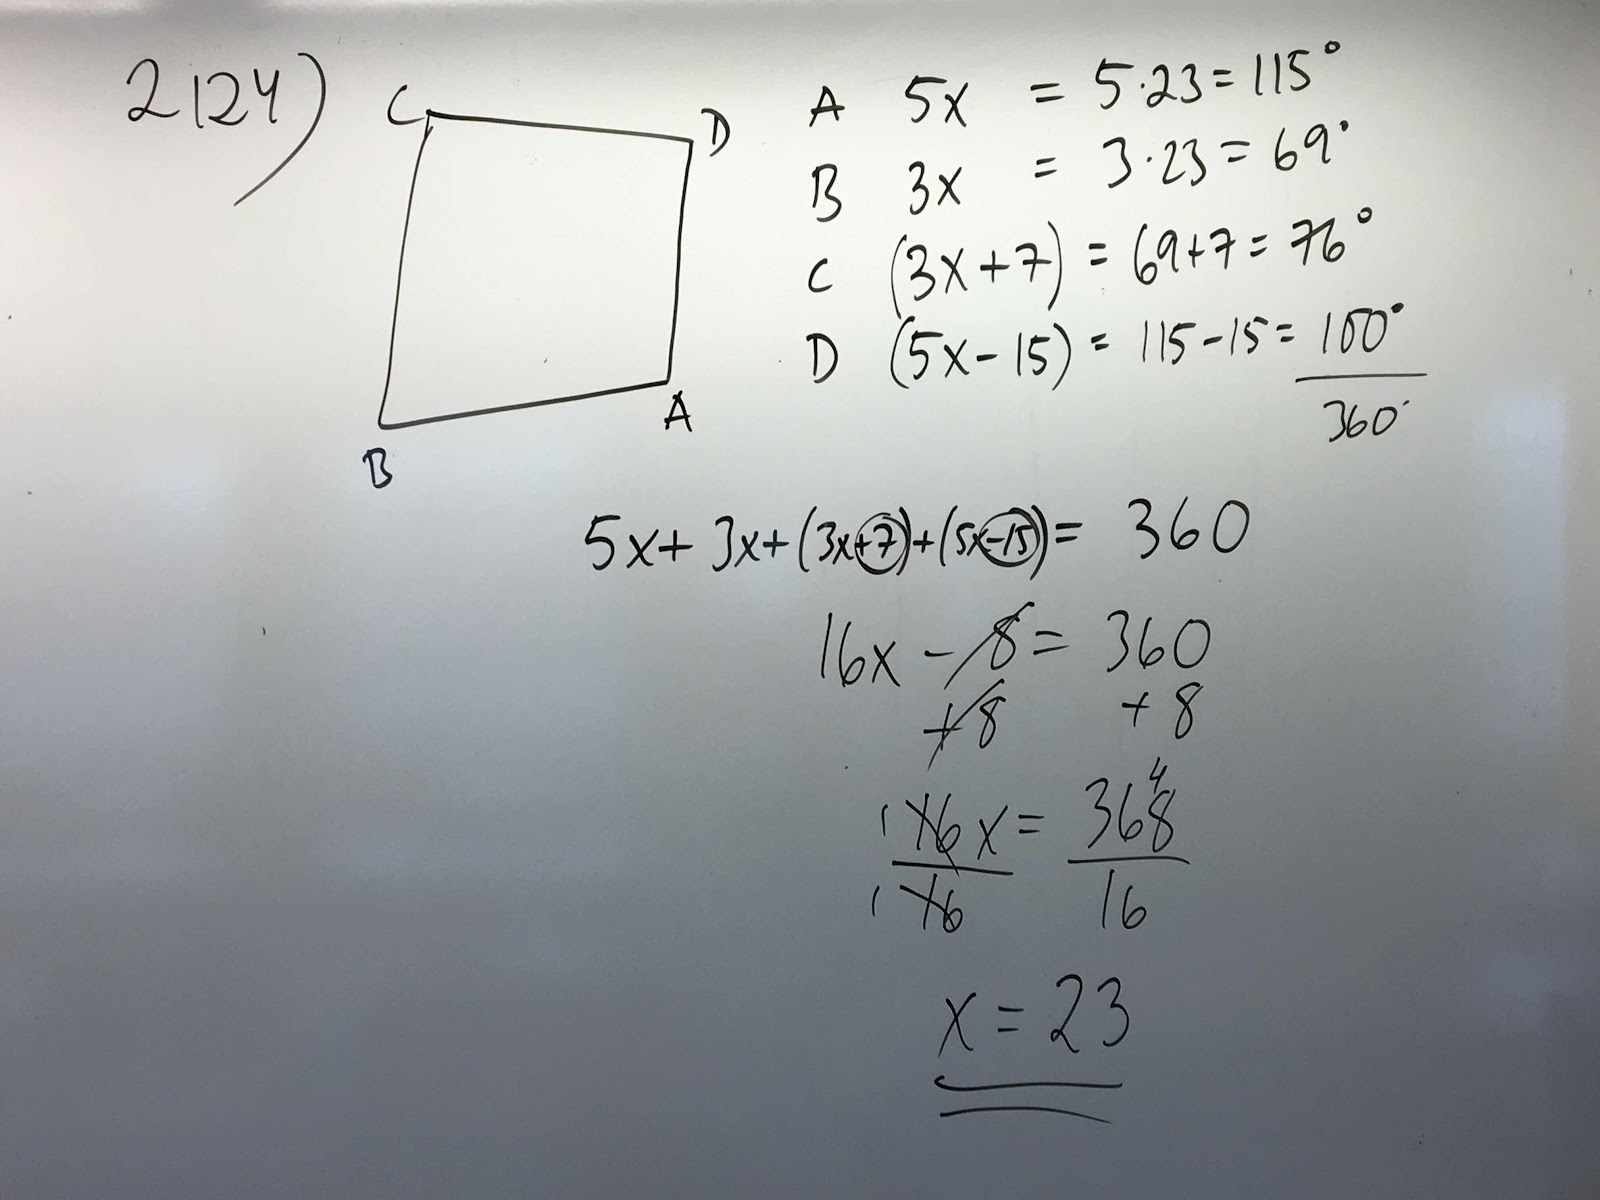 2124)
C
D
B
A
A 5x = 5·23 = 115°
B 3x = 3·23 = 69°
C (3x+7) = 69+7 = 76°
D (5x-15) = 115-15 = 100°
360°
5x+3x+(3x+7)+(5x-15) = 360
16x - 8 = 360
+8 +8
4
1 16x = 368
1 16 16
x = 23